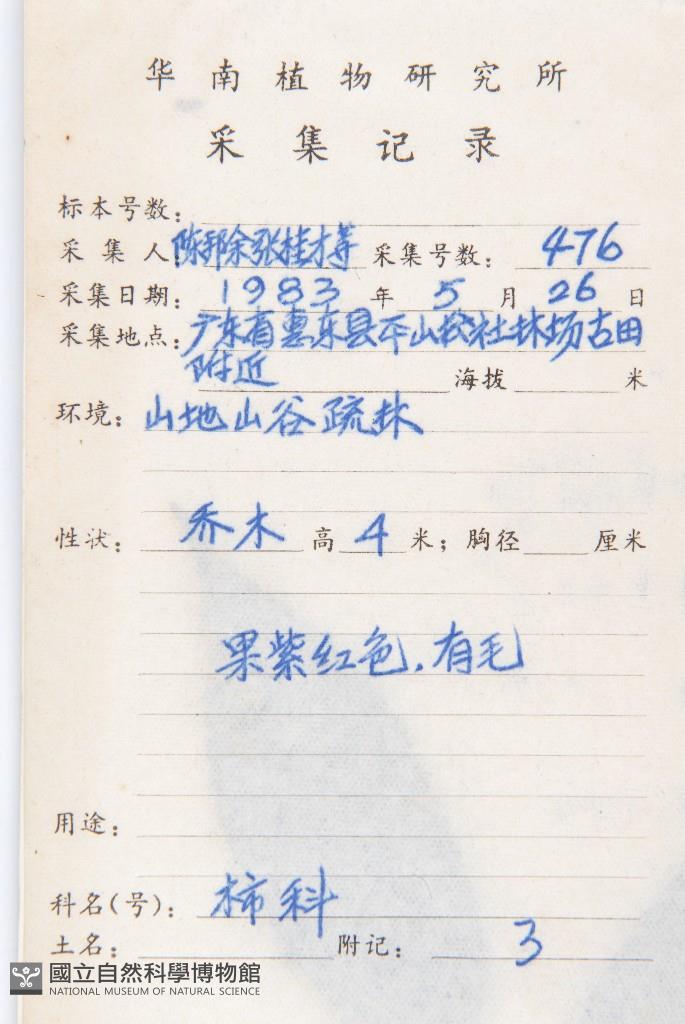 华南植物研究所
采集记录
标本号数：
采集人：陈邦余张桂才等 采集号数：476
采集日期：1983年5月26日
采集地点：广东省惠东县平山 社林场古田
附近 海拔 米
环境：山地山谷疏林
性状：乔木 高4米；胸径 厘米
果紫红色，有毛
用途：
科名(号)：柿科
土名： 附记：3
國立自然科學博物館
NATIONAL MUSEUM OF NATURAL SCIENCE